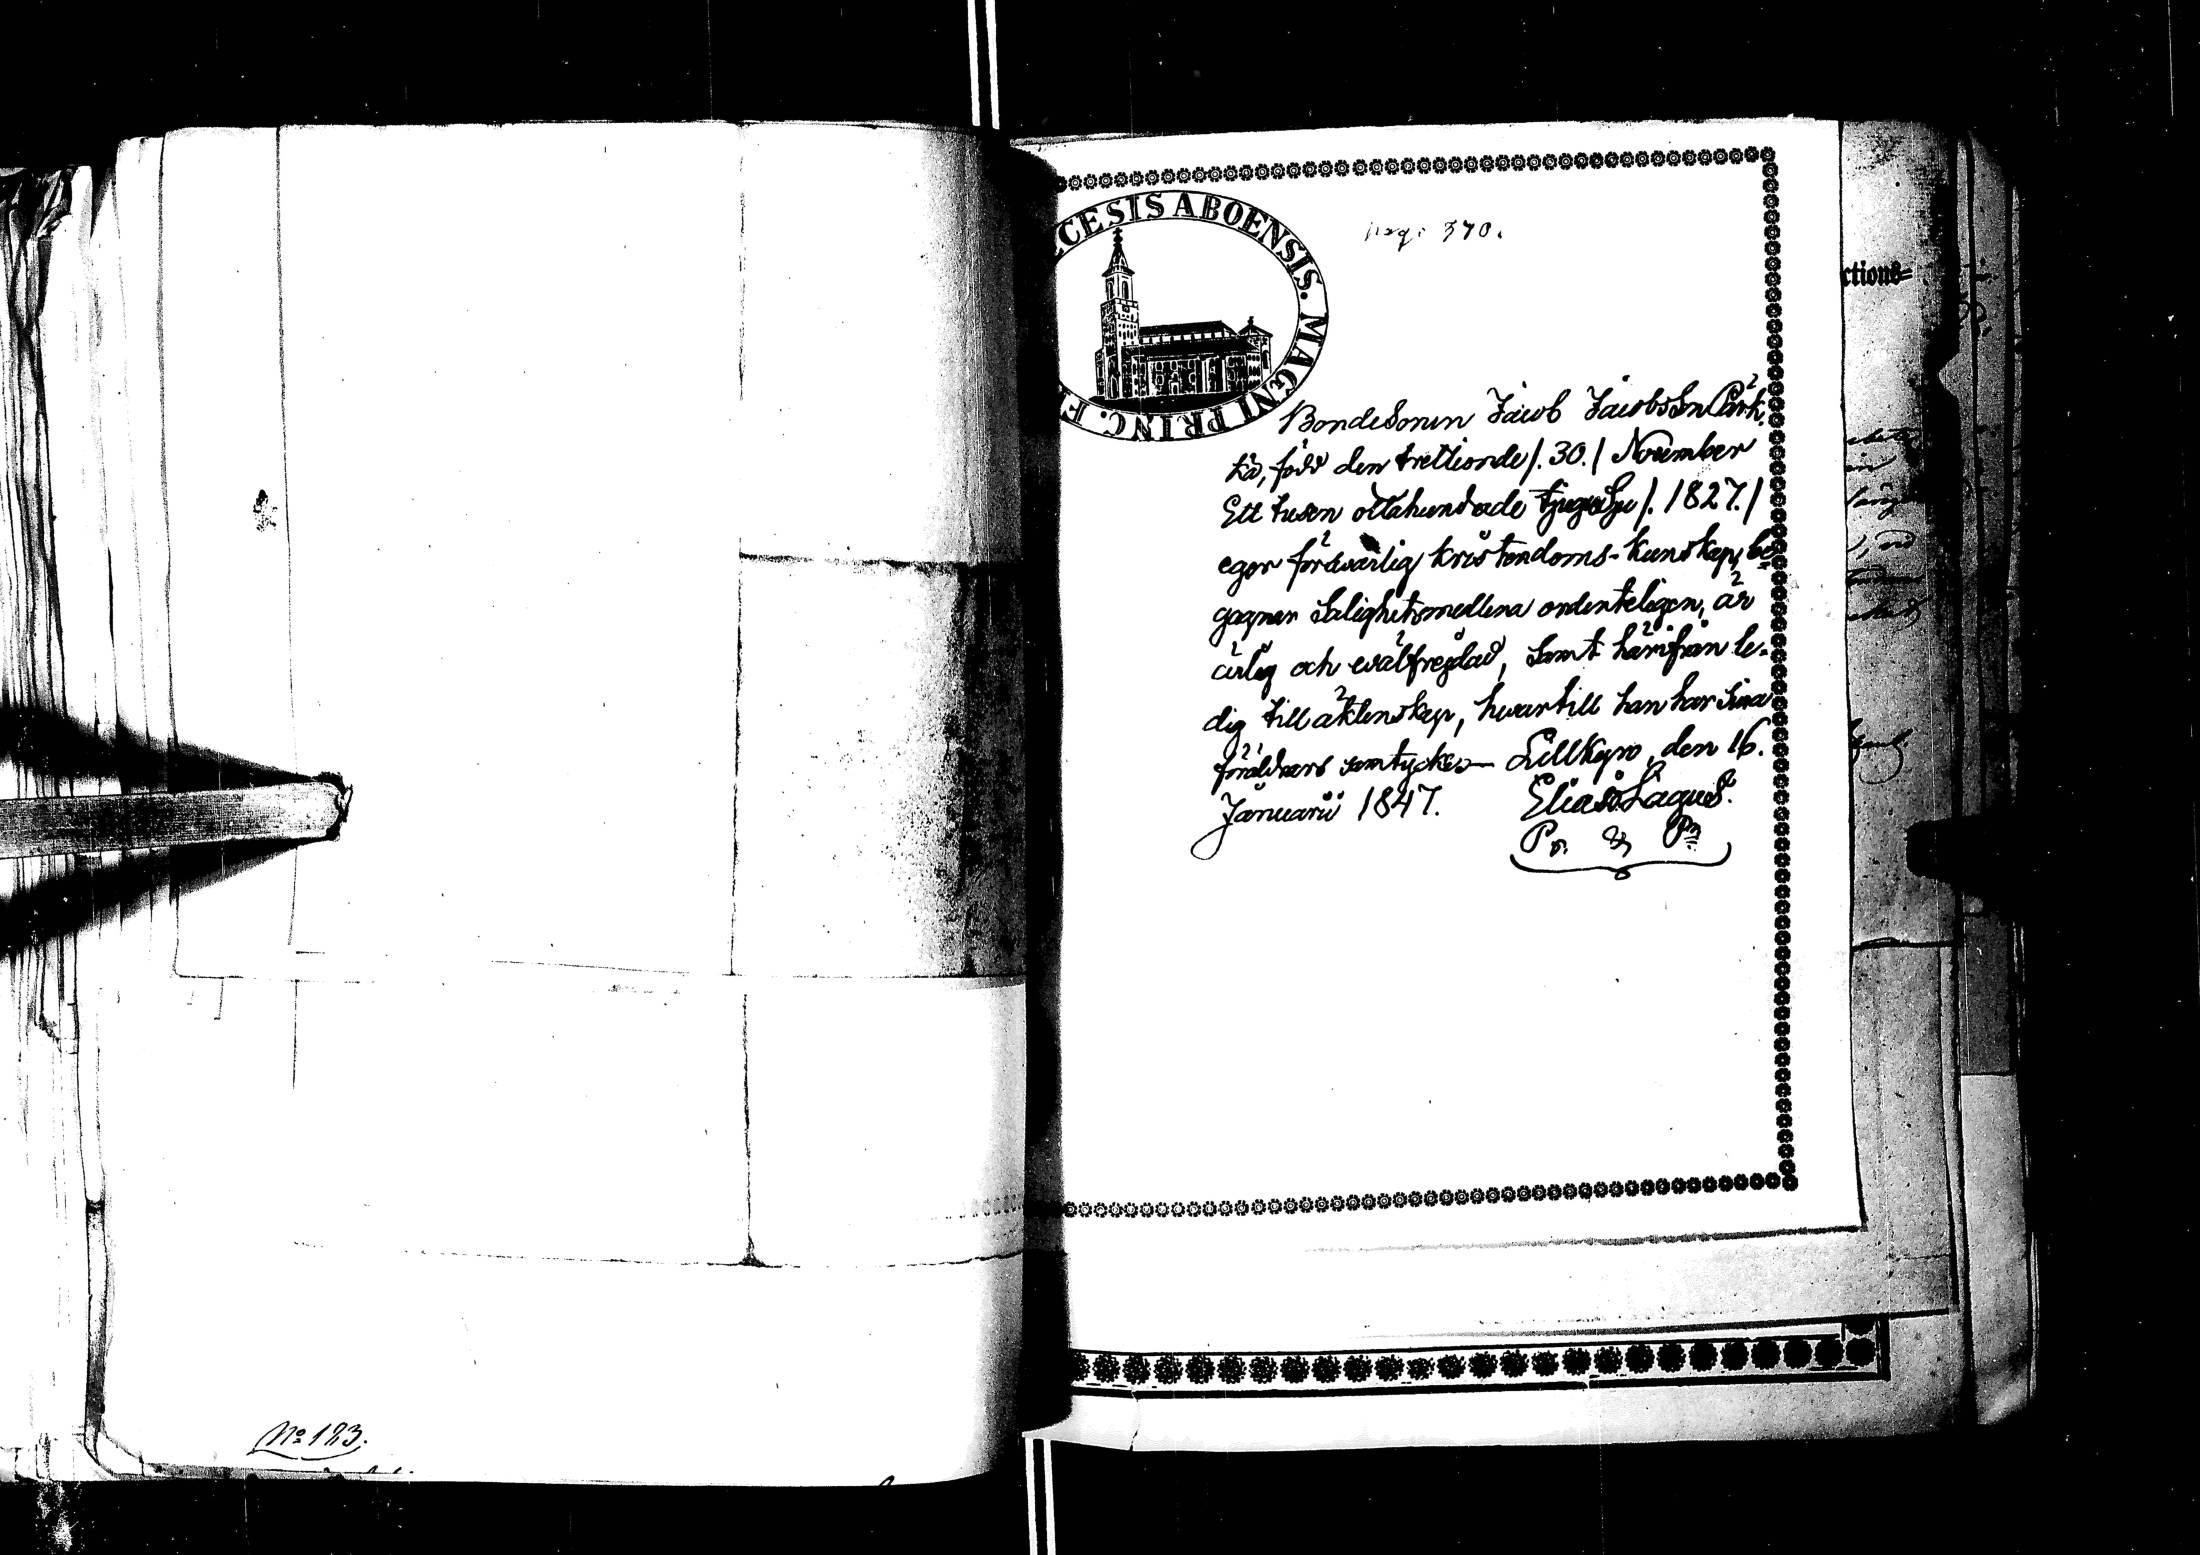 No 123.
CESIS ABOENSIS. MAGNI PRINC. F
pag. 370.
Bondesonen Jacob Jacobsson Pärk,
kä, född den trettionde /. 30. / November
Ett tusen ottahundade tjugusju /. 1827. /
eger försvarlig kristendoms-kunskap, be
gagnar salighetsmedlena ordenteligen, är
ärlig och wälfrejdad, samt härifrån le-
dig till äktenskap, hwartill han har sina
föräldrars samtycke — Lillkyro, den 16.
Januarii 1847. Elias Lagus.
P. & P.
ctions=